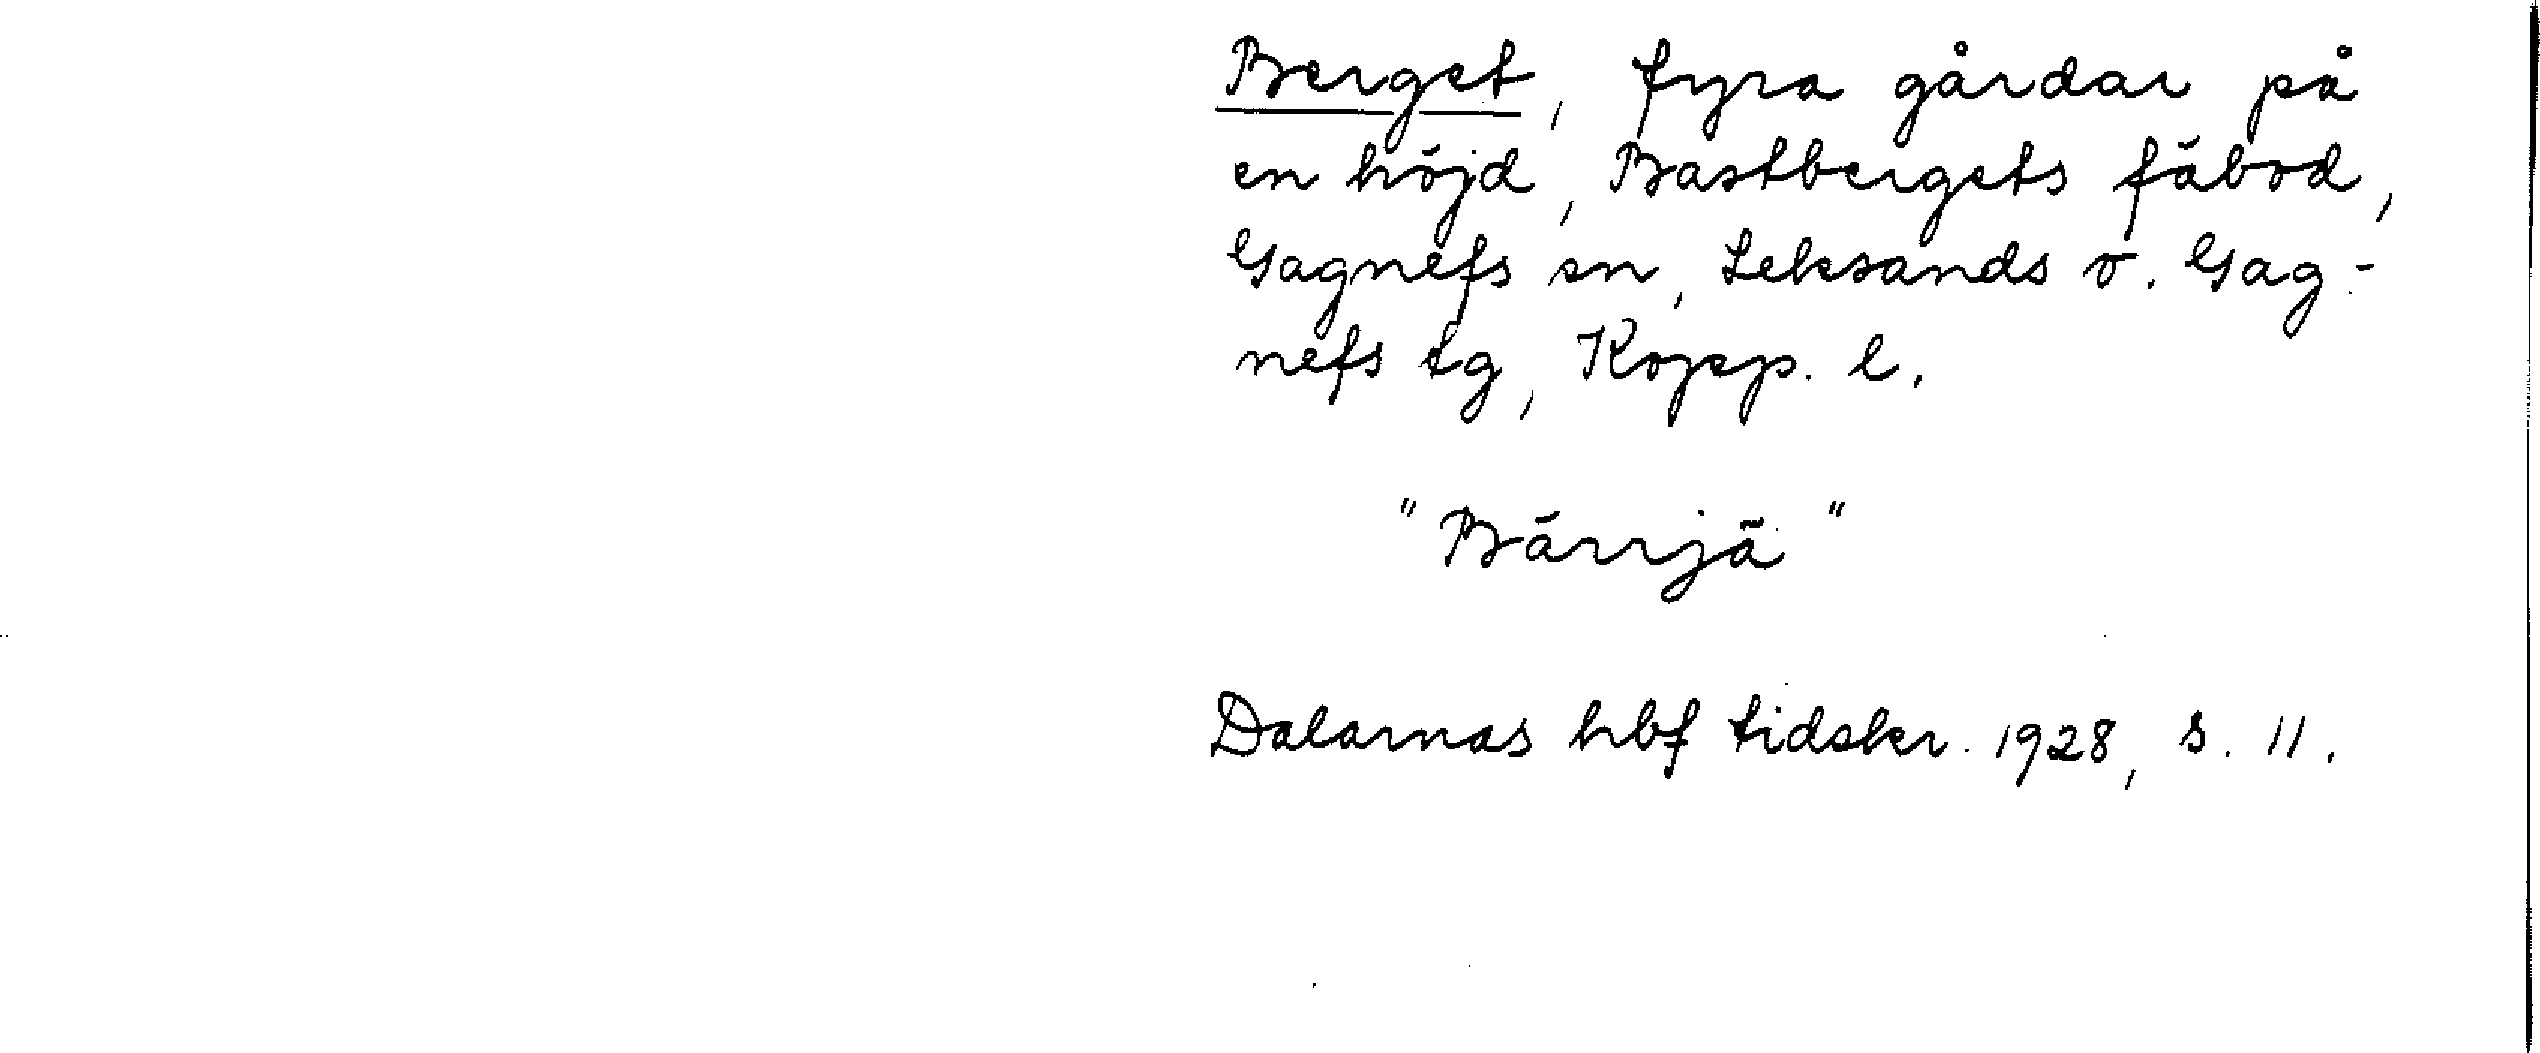 Berget, fyra gårdar på
en höjd, Bastbergets fäbod,
Gagnefs sn, Leksands o. Gag-
nefs tg, Kopp. l.
"Bärrjä"
Dalarnas hbf tidskr. 1928, s. 11.